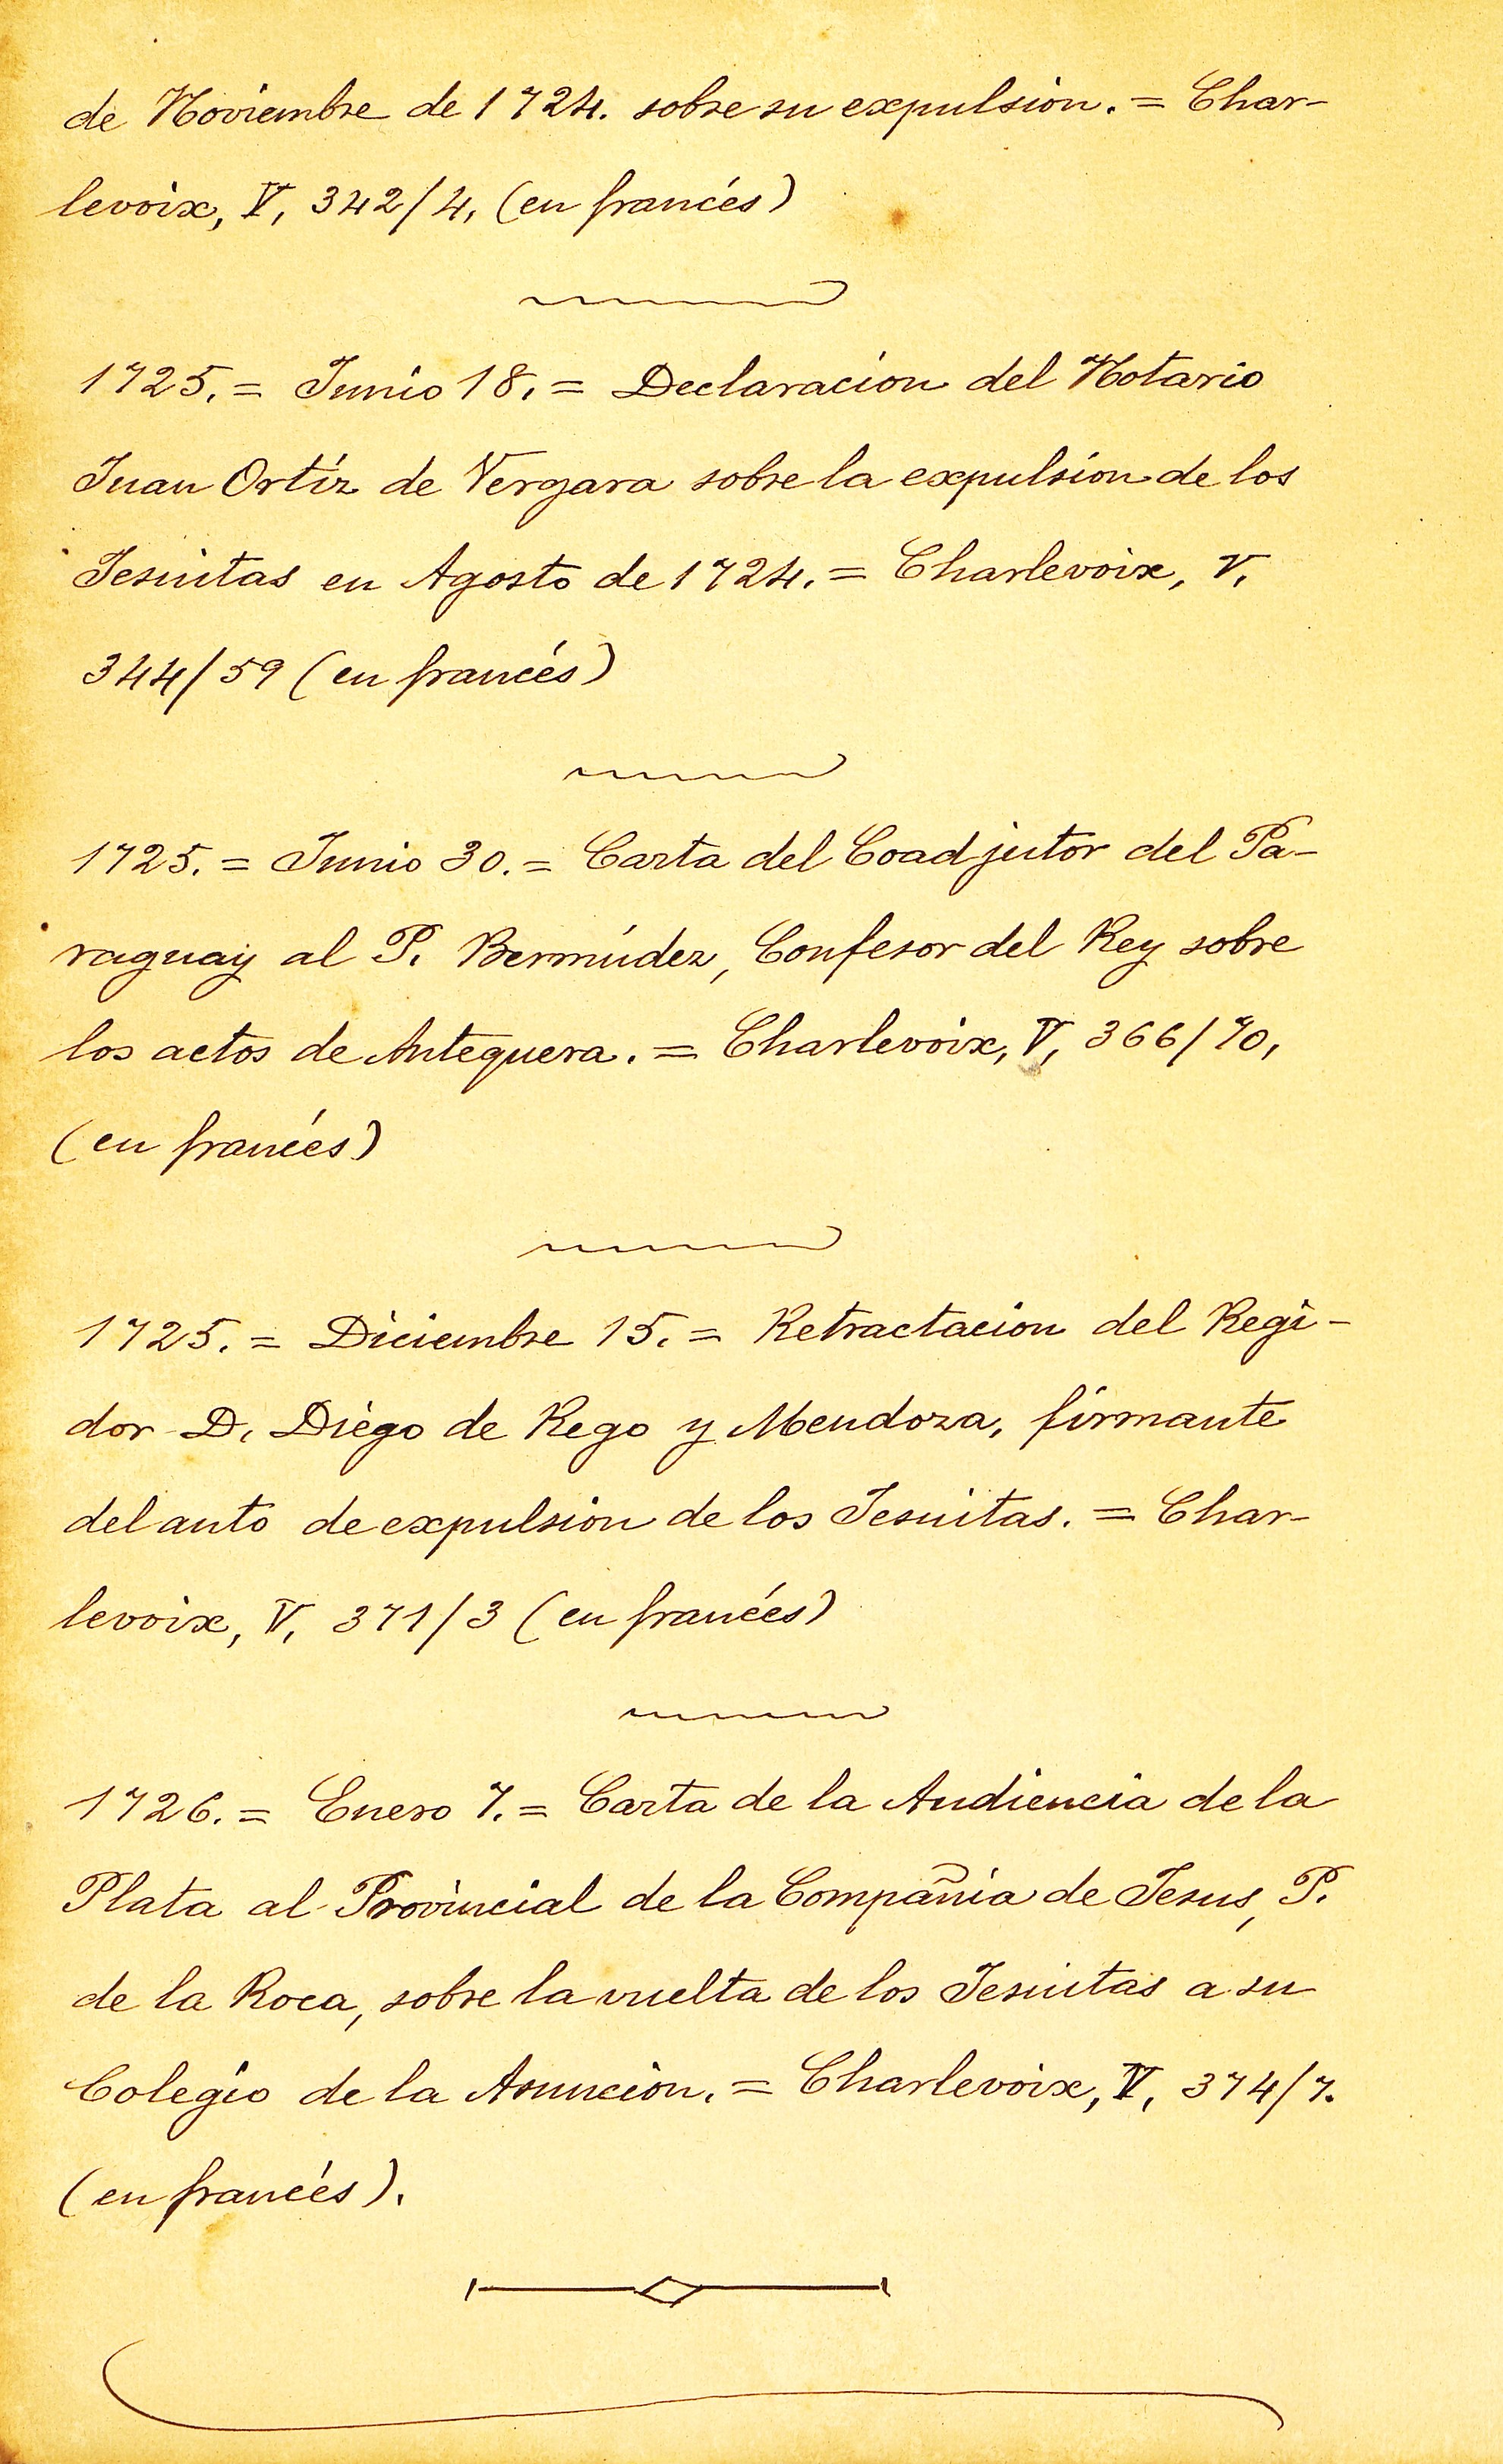 de Noviembre de 1724. sobre su expulsion. = Char-
levoix, V, 342/4, (en francés)
1725. = Junio 18. = Declaracion del Notario
Juan Ortíz de Vergara sobre la expulsion de los
Jesuitas en Agosto de 1724. = Charlevoix, V,
344/59 (en francés)
1725. = Junio 30. = Carta del Coadjutor del Pa-
raguay al P. Bermúdez, Confesor del Rey sobre
los actos de Antequera. = Charlevoix, V, 366/70,
(en francés)
1725. = Diciembre 15. = Retractacion del Regi-
dor D. Diego de Rego y Mendoza, firmante
del auto de expulsion de los Jesuitas. = Char-
levoix, V, 371/3 (en francés)
1726. = Enero 7. = Carta de la Audiencia de la
Plata al Provincial de la Compañia de Jesus, P.
de la Roca, sobre la vuelta de los Jesuitas a su
Colegio de la Asuncion. = Charlevoix, V, 374/7.
(en francés).